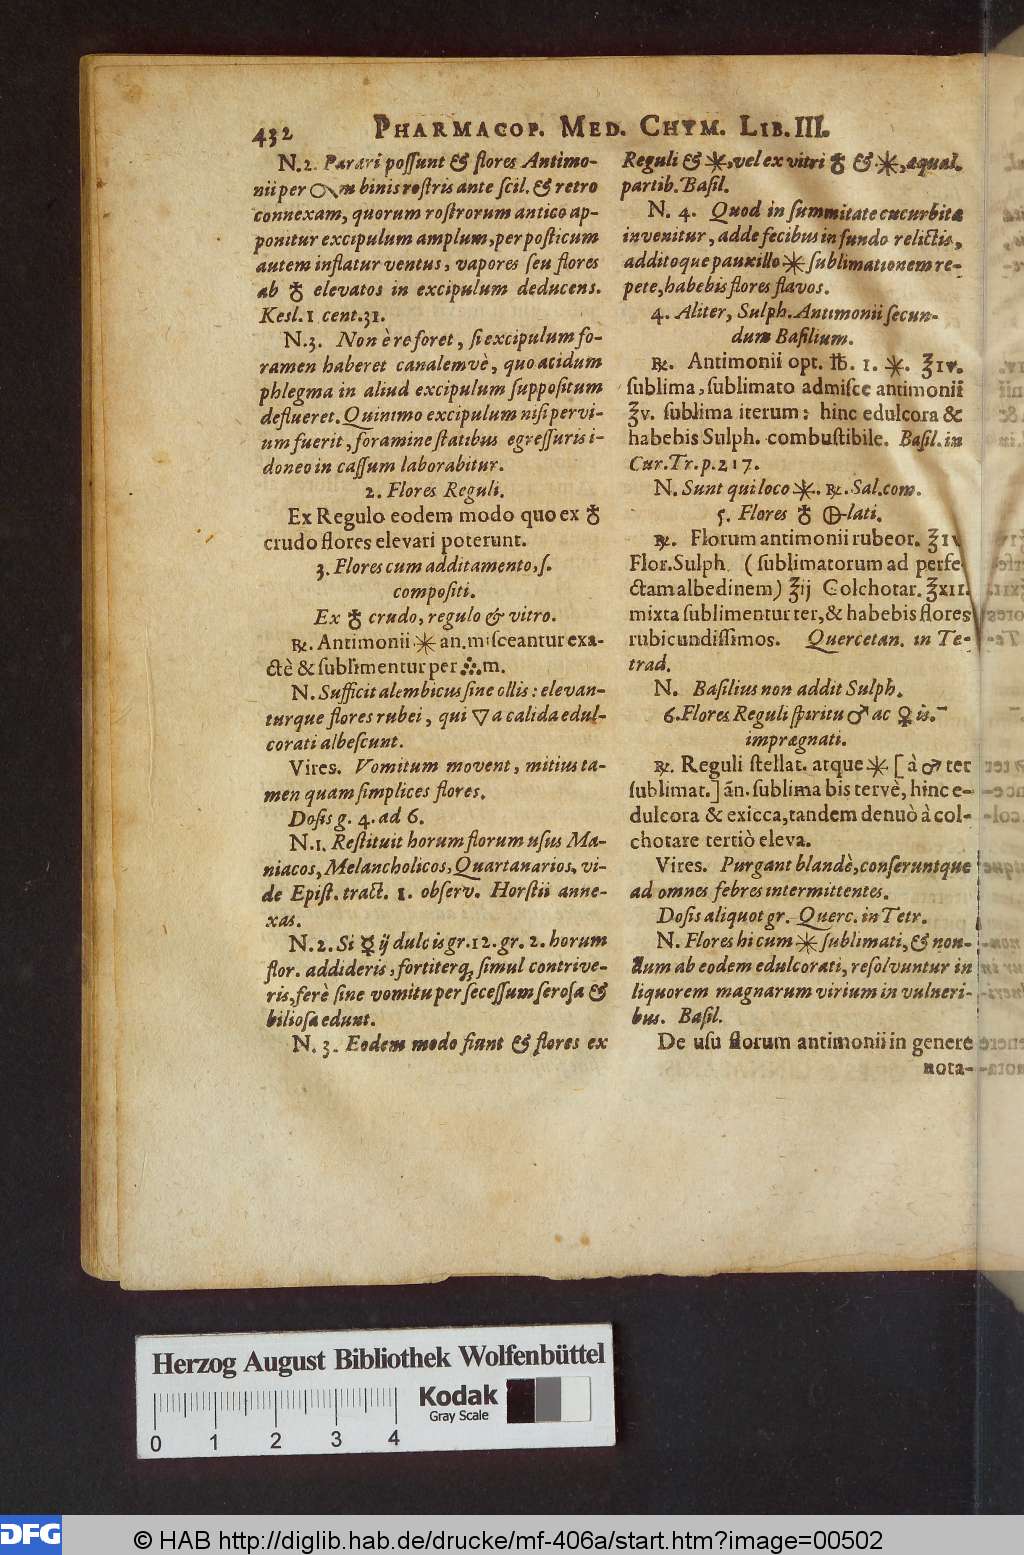 432 PHARMACOP. MED. CHYM. LIB. III.
N. 2. Parari possunt & flores Antimo-
nii per m binis rostris ante scil. & retro
connexam, quorum rostrorum antico ap-
ponitur excipulum amplum, per posticum
autem inflatur ventus, vapores seu flores
ab ♁ elevatos in excipulum deducens.
Kesl. 1 cent. 31.
N. 3. Non è re foret, si excipulum fo-
ramen haberet canalemvè, quo acidum
phlegma in aliud excipulum suppositum
deflueret. Quinimo excipulum nisi pervi-
um fuerit, foramine flatibus egressuris i-
doneo in cassum laborabitur.
2. Flores Reguli.
Ex Regulo eodem modo quo ex ♁
crudo flores elevari poterunt.
3. Flores cum additamento, s.
compositi.
Ex ♁ crudo, regulo & vitro.
℞. Antimonii ✳ an. misceantur exa-
ctè & sublimentur per m.
N. Sufficit alembicus sine ollis: elevan-
turque flores rubei, qui ▽a calida edul-
corati albescunt.
Vires. Vomitum movent, mitius ta-
men quam simplices flores.
Dosis g. 4. ad 6.
N. 1. Restituit horum florum usus Ma-
niacos, Melancholicos, Quartanarios, vi-
de Epist. tract. 1. observ. Horstii anne-
xas.
N. 2. Si ☿ ij dulcis gr. 12. gr. 2. horum
flor. addideris, fortiterq; simul contrive-
ris, ferè sine vomitu per secessum serosa &
biliosa edunt.
N. 3. Eodem modo fiunt & flores ex
Reguli & ✳, vel ex vitri ♁ & ✳, æqual.
partib. Basil.
N. 4. Quod in summitate cucurbitæ
invenitur, adde fecibus in fundo relictis,
additoque pauxillo ✳ sublimationem re-
pete, habebis flores flavos.
4. Aliter, Sulph. Antimonii secun-
dum Basilium.
℞. Antimonii opt. ℔. 1. ✳. ℥iv.
sublima, sublimato admisce antimonii
℥v. sublima iterum: hinc edulcora &
habebis Sulph. combustibile. Basil. in
Cur. Tr. p. 217.
N. Sunt qui loco ✳. ℞. Sal. com.
5. Flores ♁ lati.
℞. Florum antimonii rubeor. ℥iv
Flor. Sulph. (sublimatorum ad perfe-
ctam albedinem) ℥ij Colchotar. ℥xii.
mixta sublimentur ter, & habebis flores
rubicundissimos. Quercetan. in Te-
trad.
N. Basilius non addit Sulph.
6. Flores Reguli spiritu ♂ ac ♀is.
imprægnati.
℞. Reguli stellat. atque ✳ [à ♂ ter
sublimat.] ãn. sublima bis tervè, hinc e-
dulcora & exicca, tandem denuò à col-
chotare tertiò eleva.
Vires. Purgant blandè, conferuntque
ad omnes febres intermittentes.
Dosis aliquot gr. Querc. in Tetr.
N. Flores hi cum ✳ sublimati, & non-
dum ab eodem edulcorati, resolvuntur in
liquorem magnarum virium in vulneri-
bus. Basil.
De usu florum antimonii in genere
nota-
Herzog August Bibliothek Wolfenbüttel
Kodak
Gray Scale
0 1 2 3 4
DFG
© HAB http://diglib.hab.de/drucke/mf-406a/start.htm?image=00502